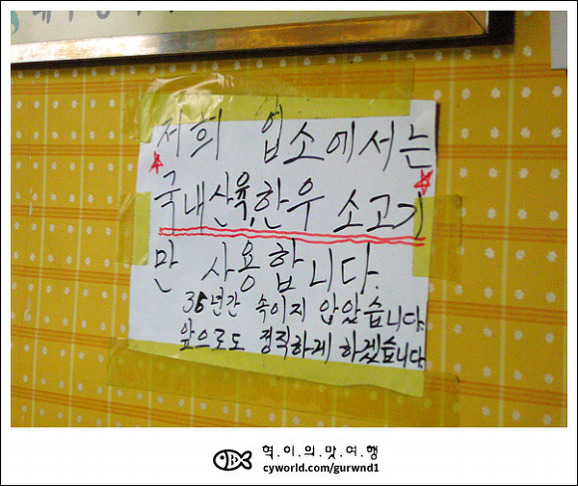 저희 업소에서는
국내산육,한우 소고기
만 사용합니다.
35년간 속이지 않았습니다.
앞으로도 정직하게 하겠습니다.
혁.이.의.맛.여.행
cyworld.com/gurwnd1